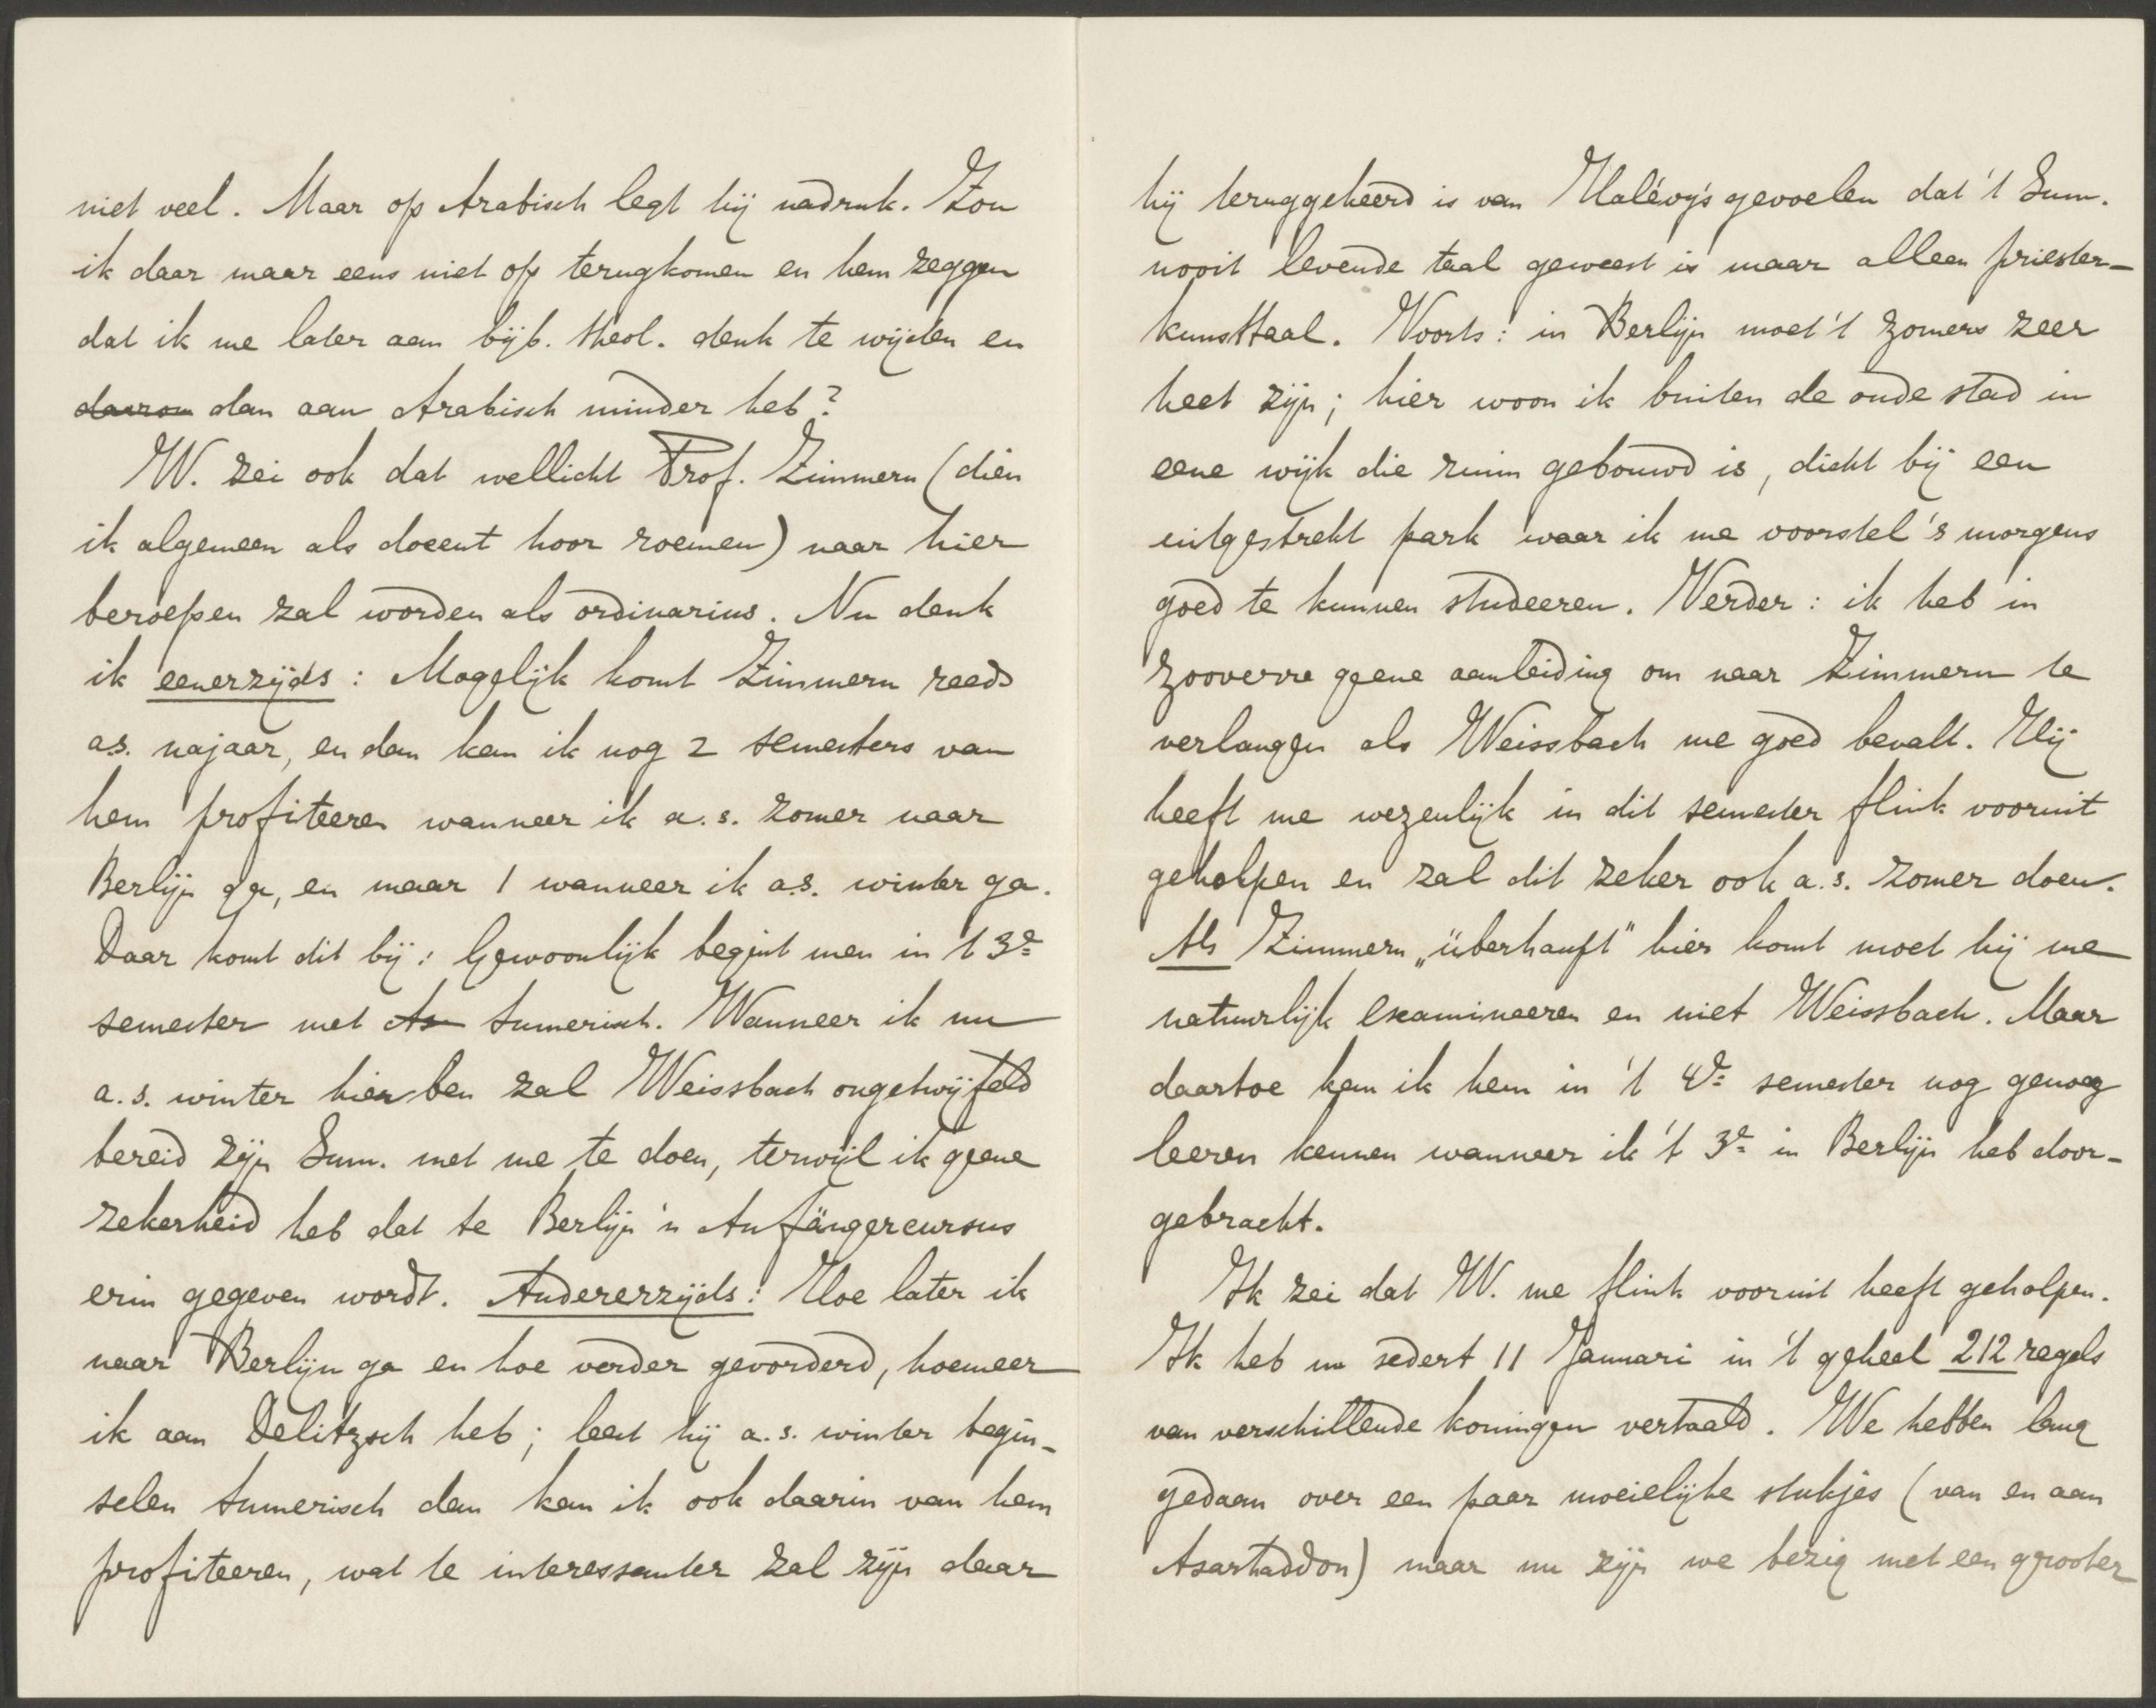 niet veel. Maar op Arabisch legt hij nadruk. Zou
ik daar maar eens niet op terugkomen en hem zeggen
dat ik me later aan bijb. theol. denk te wijden en
daarom dan aan Arabisch minder heb?
W. zei ook dat wellicht Prof. Zimmern (dien
ik algemeen als docent hoor roemen) naar hier
beroepen zal worden als ordinarius. Nu denk
ik eenerzijds: Mogelijk komt Zimmern reeds
a.s. najaar, en dan kan ik nog 2 semesters van
hem profiteeren wanneer ik a.s. zomer naar
Berlijn ga, en maar 1 wanneer ik a.s. winter ga.
Daar komt dit bij: Gewoonlijk begint men in 't 3e
semester met As Sumerisch. Wanneer ik nu
a.s. winter hier ben zal Weissbach ongetwijfeld
bereid zijn Sum. met me te doen, terwijl ik geene
zekerheid heb dat te Berlijn 'n Anfängercursus
erin gegeven wordt. Andererzijds: Hoe later ik
naar Berlijn ga en hoe verder gevorderd, hoemeer
ik aan Delitzsch heb; leest hij a.s. winter begin-
selen Sumerisch dan kan ik ook daarin van hem
profiteeren, wat te interessanter zal zijn daar
hij teruggekeerd is van Halévy's gevoelen dat 't Sum.
nooit levende taal geweest is maar alleen priester-
kunsttaal. Voorts: in Berlijn moet 't zomers zeer
heet zijn; hier woon ik buiten de oude stad in
eene wijk die ruim gebouwd is, dicht bij een
uitgestrekt park waar ik me voorstel 's morgens
goed te kunnen studeeren. Verder: ik heb in
zooverre geene aanleiding om naar Zimmern te
verlangen als Weissbach me goed bevalt. Hij
heeft me wezenlijk in dit semester flink vooruit
geholpen en zal dit zeker ook a.s. zomer doen.
Als Zimmern „überhaupt" hier komt moet hij me
natuurlijk examineeren en niet Weissbach. Maar
daartoe kan ik hem in 't 4de semester nog genoeg
leeren kennen wanneer ik 't 3e in Berlijn heb door-
gebracht.
Ik zei dat W. me flink vooruit heeft geholpen.
Ik heb nu sedert 11 Januari in 't geheel 212 regels
van verschillende koningen vertaald. We hebben lang
gedaan over een paar moeielijke stukjes (van en aan
Asarhaddon) maar nu zijn we bezig met een grooter